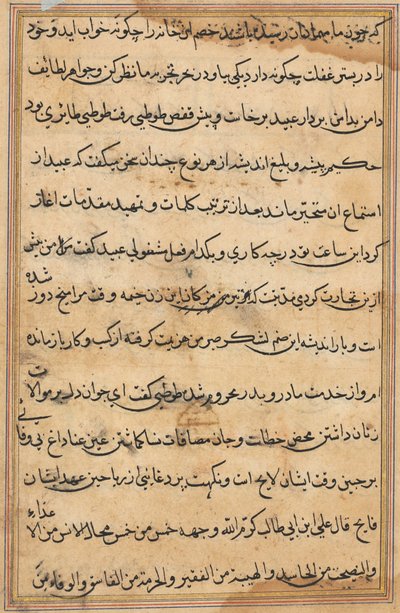 که چون ما بهم ادات رسیده باشند خصم این خانه را چکونه خواب اید و خود
را در بستر غفلت چکونه دارد یکی یا در نخ تجربه ما نظر کن و جواهر لطایف
دامن بدامن بردار عبید برخاست و پیش قفص طوطی رفت طوطی طایری بود
حکیم پیشه و بلیغ اندیشه از هر نوع چندان سخن میکفت که عبید از
استماع ان متحیر ماند بعد از ترتیب کلمات و تمهید مقدمات اغاز
کرد این ساعت تو در چه کاری و بکدام فعل مشغولی عبید کفت مرا من پیش
ازین تجارت کردی مدتیست که تیر من کان این زن خیمه و قت مرا سخ دور شده
است و بار اندیشه این صنم لشکر صبر من هزیمت کرفته از کسب و کار بازمانده
ام و از خدمت مادر و پدر محروم شده طوطی کفت ای جوان دل بر موالات
زنان داشتن محض خطاست و جان مصافات نساکماشتن عین عنا داغ بی وفائی
بر جبین وقت ایشان لایح است و نکهت بد دغایی از ریاحین عهد ایشان
فایح قال علی ابن ابی طالب کرم الله وجهه خمس من خمس محال الانس من الاعداء
والنصیحت من الحاسد والهیبة من الفقیر والحرمة من الفاسق والوفاء من